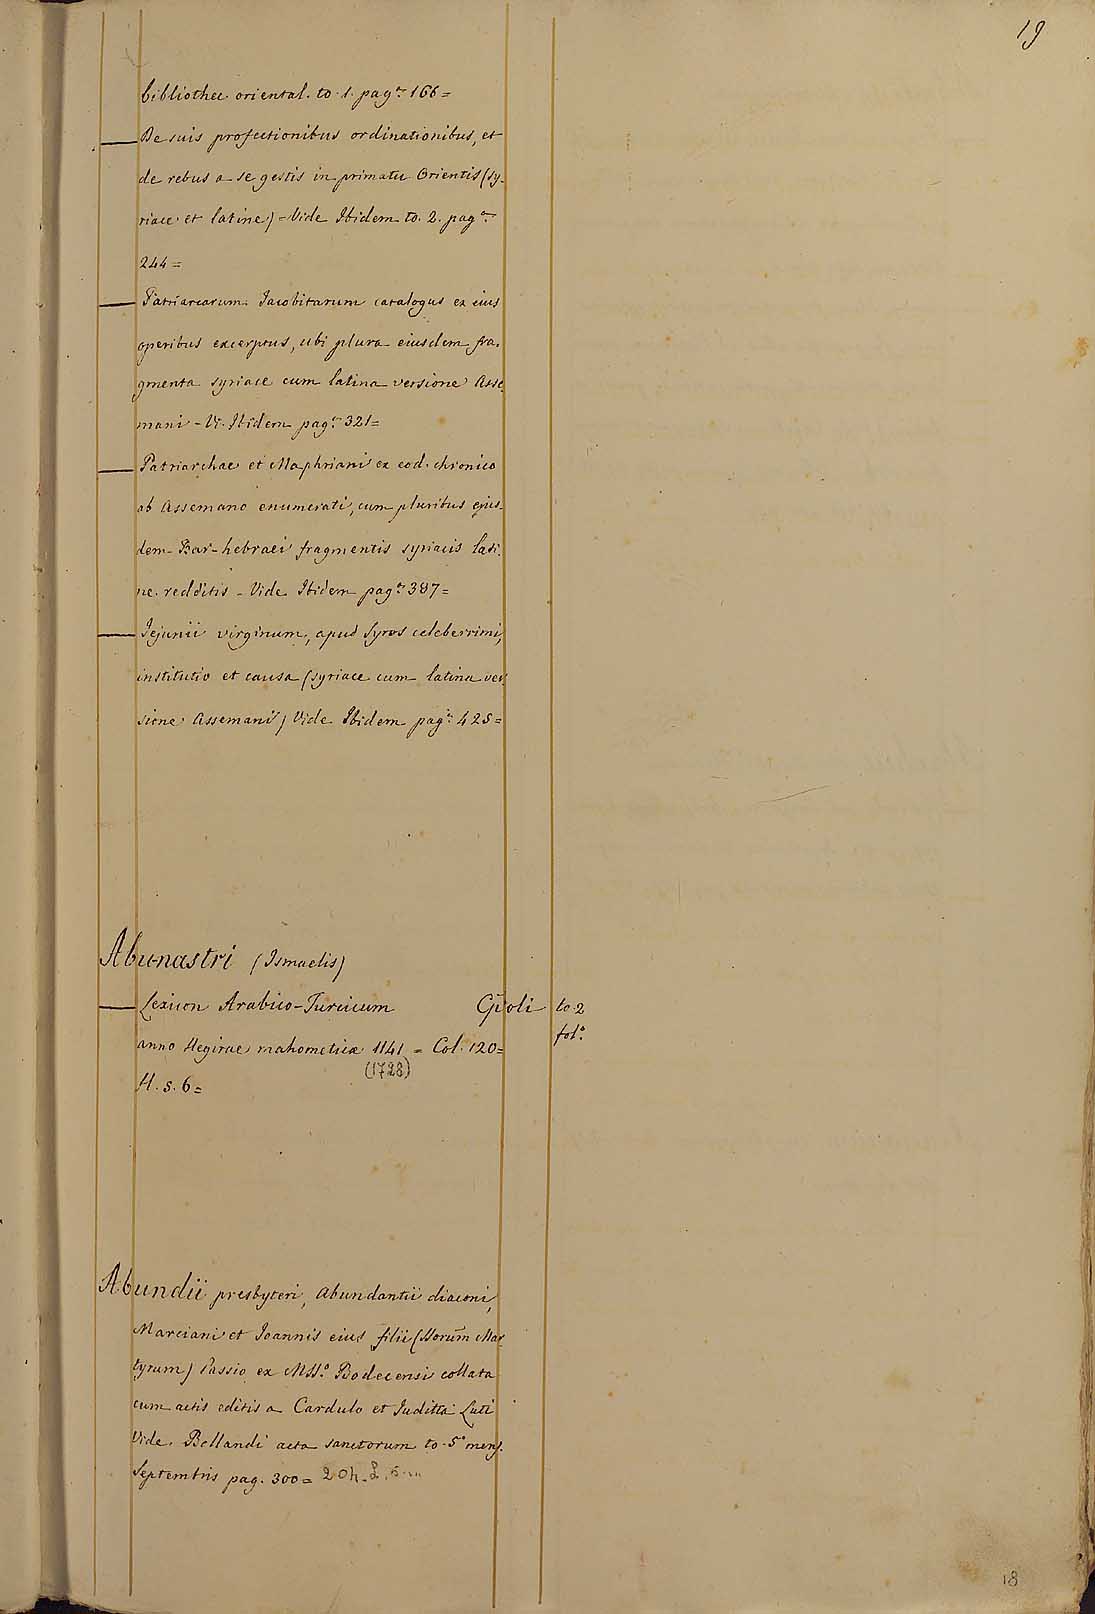 19
bibliothec. oriental. to. 1. pagᵃ 166=
De suis profectionibus ordinationibus, et
de rebus a se gestis in primatu Orientis (sy-
riace et latine) - Vide Ibidem to. 2. pagᵃ
244=
Patriarcarum Jacobitarum catalogus ex eius
operibus excerptus, ubi plura eiusdem fra-
gmenta syriace cum latina versione Asse
mani - Vi. Ibidem pagᵃ 321=
Patriarchae et Maphriani ex eod. chronico
ab Assemano enumerati, cum pluribus ejus-
dem Bar-hebraei fragmentis syriacis lati-
ne redditis - Vide Ibidem pagᵃ 387=
Jejunii virginum, apud Syros celeberrimi,
institutio et causa (syriace cum latina ver
sione Assemani) Vide Ibidem pagᵃ 425=
Abunastri (Ismaelis)
Lexicon Arabico-Turcicum Cp̄oli to 2
folº
anno Hegirae mahometicæ 1141 = Col. 120=
(1728)
H. s. 6=
Abundii presbyteri, Abundantii diaconi,
Marciani et Joannis eius filii (Horum Mar
tyrum) Passio ex MSS.º Bodecensi collata
cum actis editis a Cardulo et Juditta Luti
Vide. Bollandi acta sanctorum to. 5º mens.
Septembris pag. 300= 20h.
18